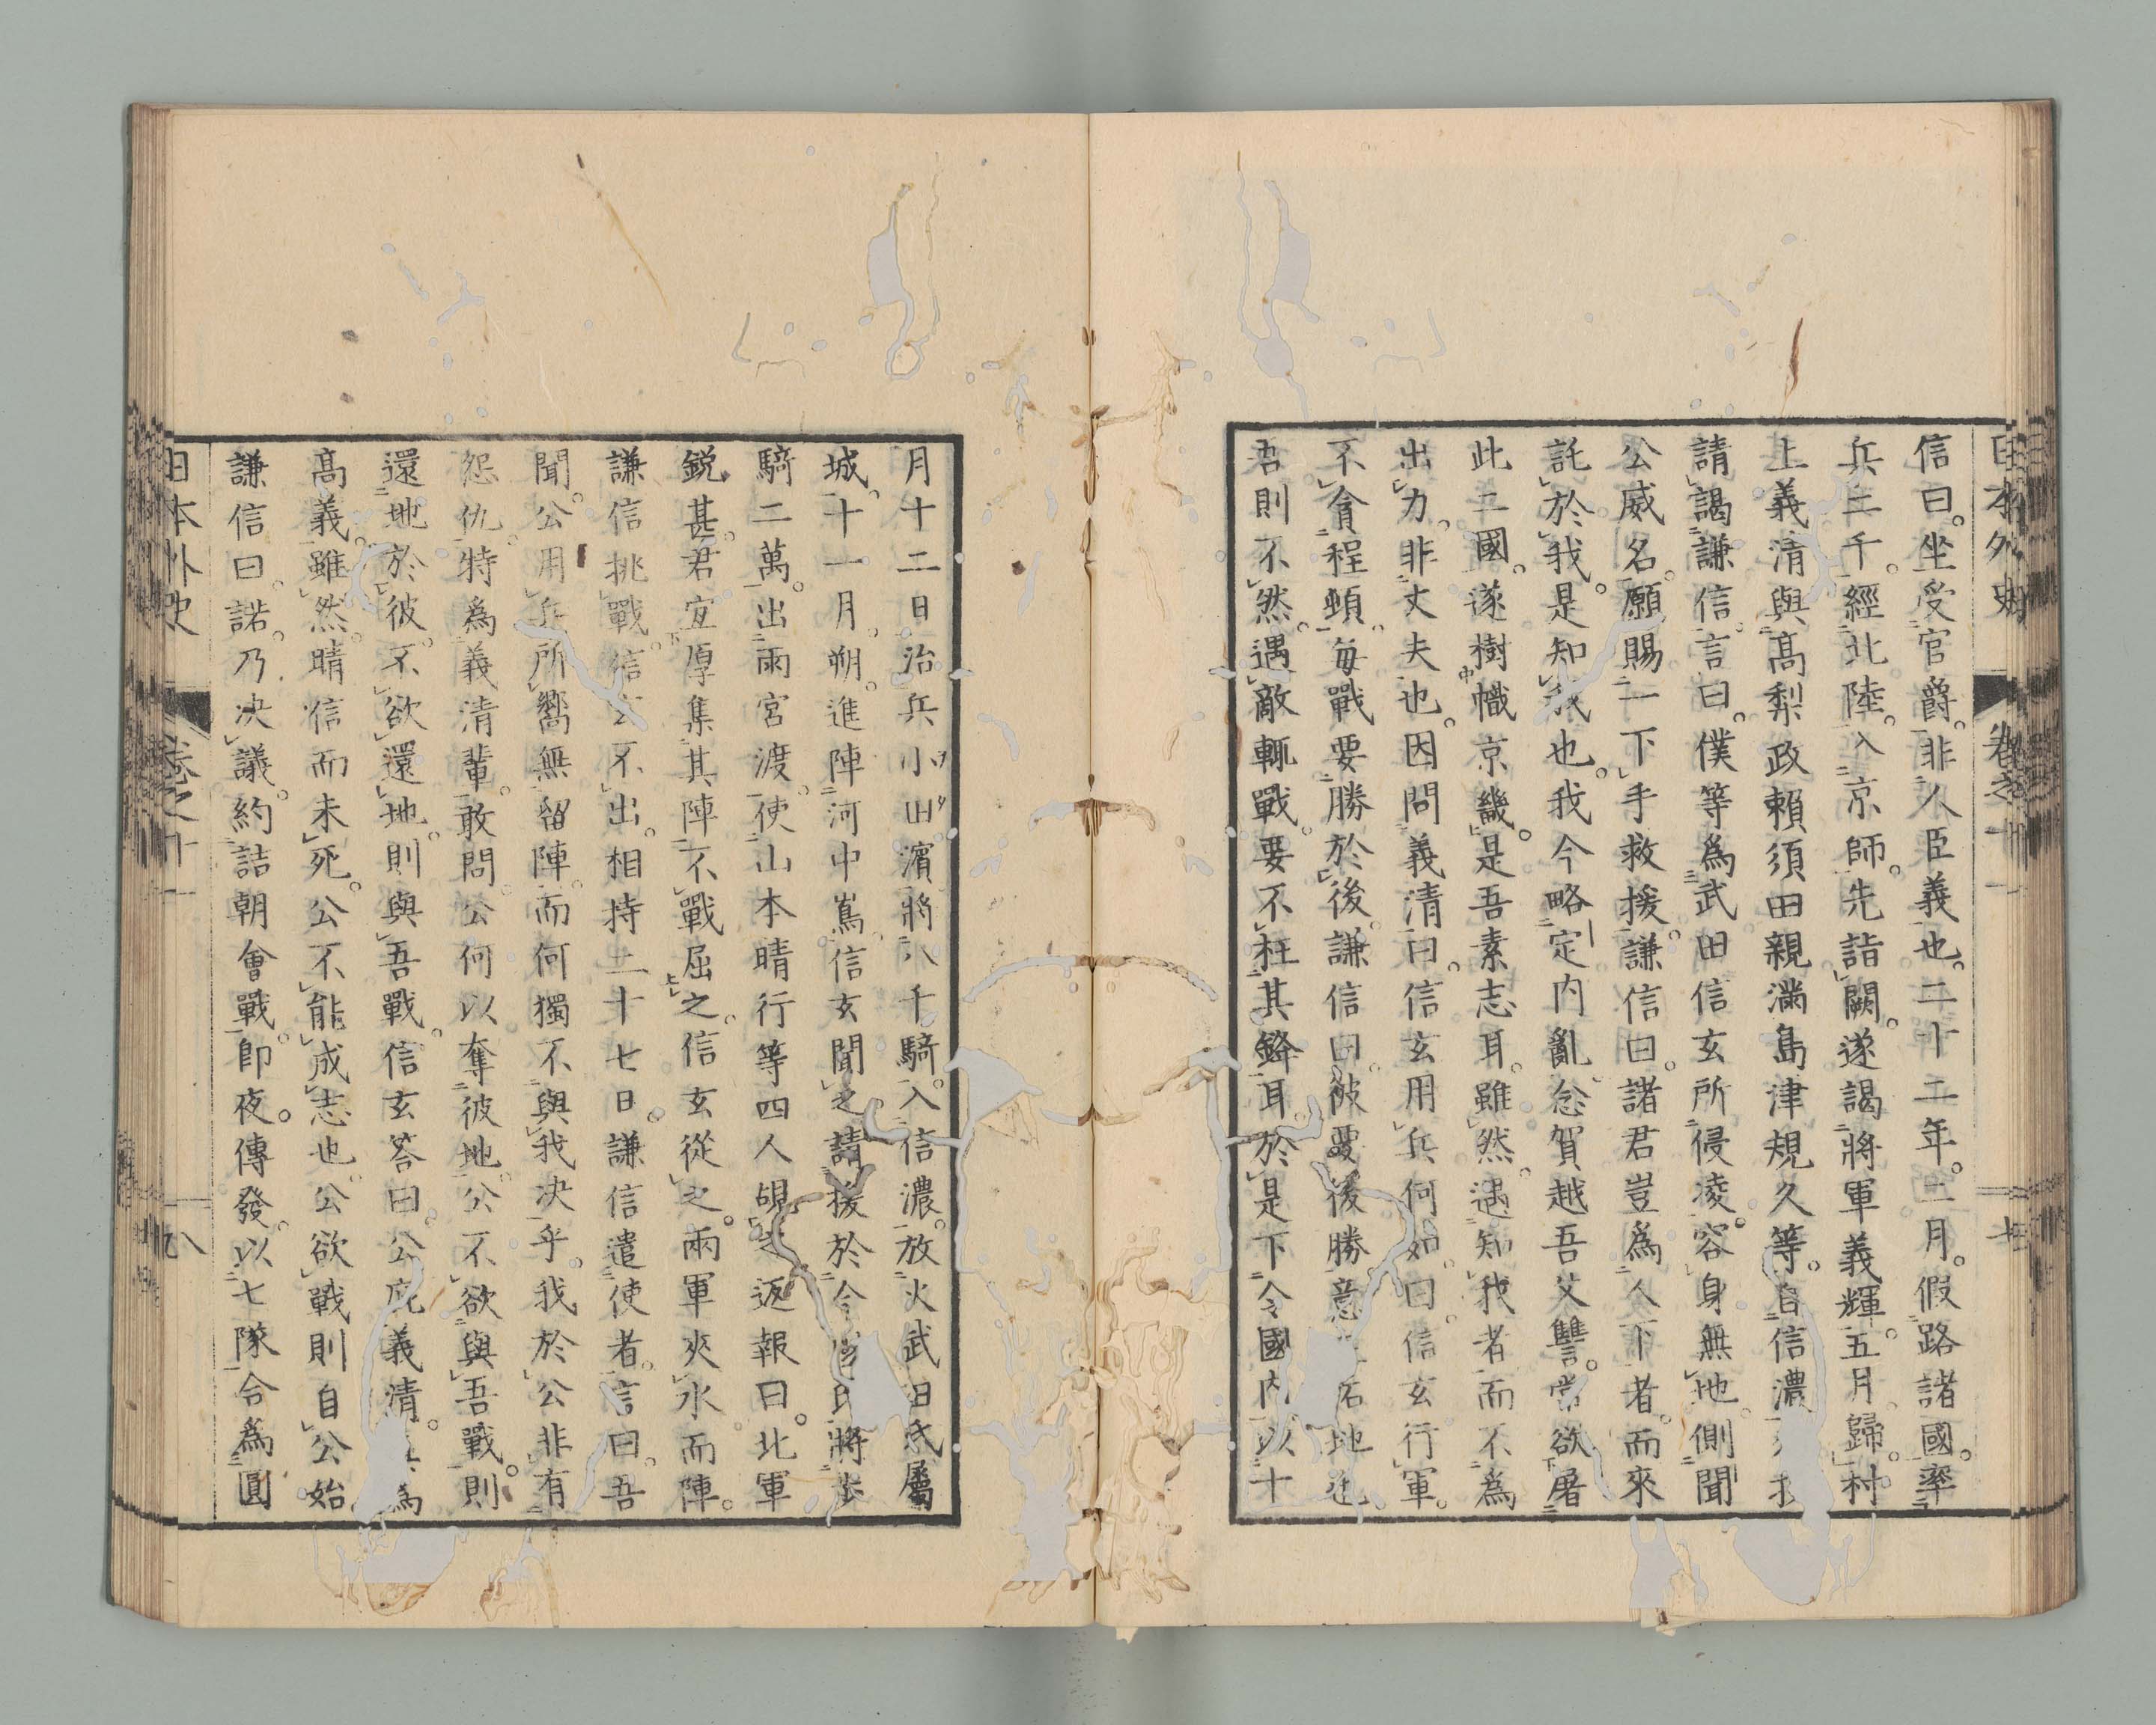 日本外史 卷之十一 七
信曰。坐受官爵。非人臣義也。二十二年。二月。假路諸國。率
兵二千。經北陸。入京師。先詣闕。遂謁將軍義輝。五月。歸。村
上義清與髙梨政賴須田親滿島津規久等。自信濃
請謁謙信。言曰。僕等爲武田信玄所侵凌。容身無地。側聞
公威名。願賜一下手救援。謙信曰。諸君豈爲人下者。而來
託於我。是知我也。我今略定内亂。念賀越吾父讐。常欲屠
此二國。遂樹幟京畿。是吾素志耳。雖然。遇知我者。而不爲
出力。非丈夫也。因問義清曰。信玄用兵何如。曰。信玄行軍。
不貪程頓。毎戰要勝於後。謙信曰。彼要後勝。意拓地也。
吾則不然。遇敵輒戰。要不枉其鋒耳。於是下令國内。以十
月十二日治兵小田濱。將八千騎。入信濃。放火武田氏屬
城。十一月。朔。進陣河中嶌。信玄聞之。請援於今川氏。將步
騎二萬。出雨宮渡。使山本晴行等四人覘之。返報曰。北軍
銳甚。君宜厚集其陣。不戰屈之。信玄從之。兩軍夾水而陣。
謙信挑戰。信玄不出。相持二十七日。謙信遣使者。言曰。吾
聞。公用兵所嚮無留陣。而何獨不與我決乎。我於公非有
怨仇。特爲義清輩。敢問公何以奪彼地。公不欲與吾戰。則
還地於彼。不欲還地。則與吾戰。信玄答曰。公庇義清。爲
髙義。雖然。晴信而未死。公不能成志也。公欲戰則自公始。
謙信曰。諾。乃決議。約詰朝會戰。卽夜。傳發。以七隊合爲圓
日本外史 卷之十一 八